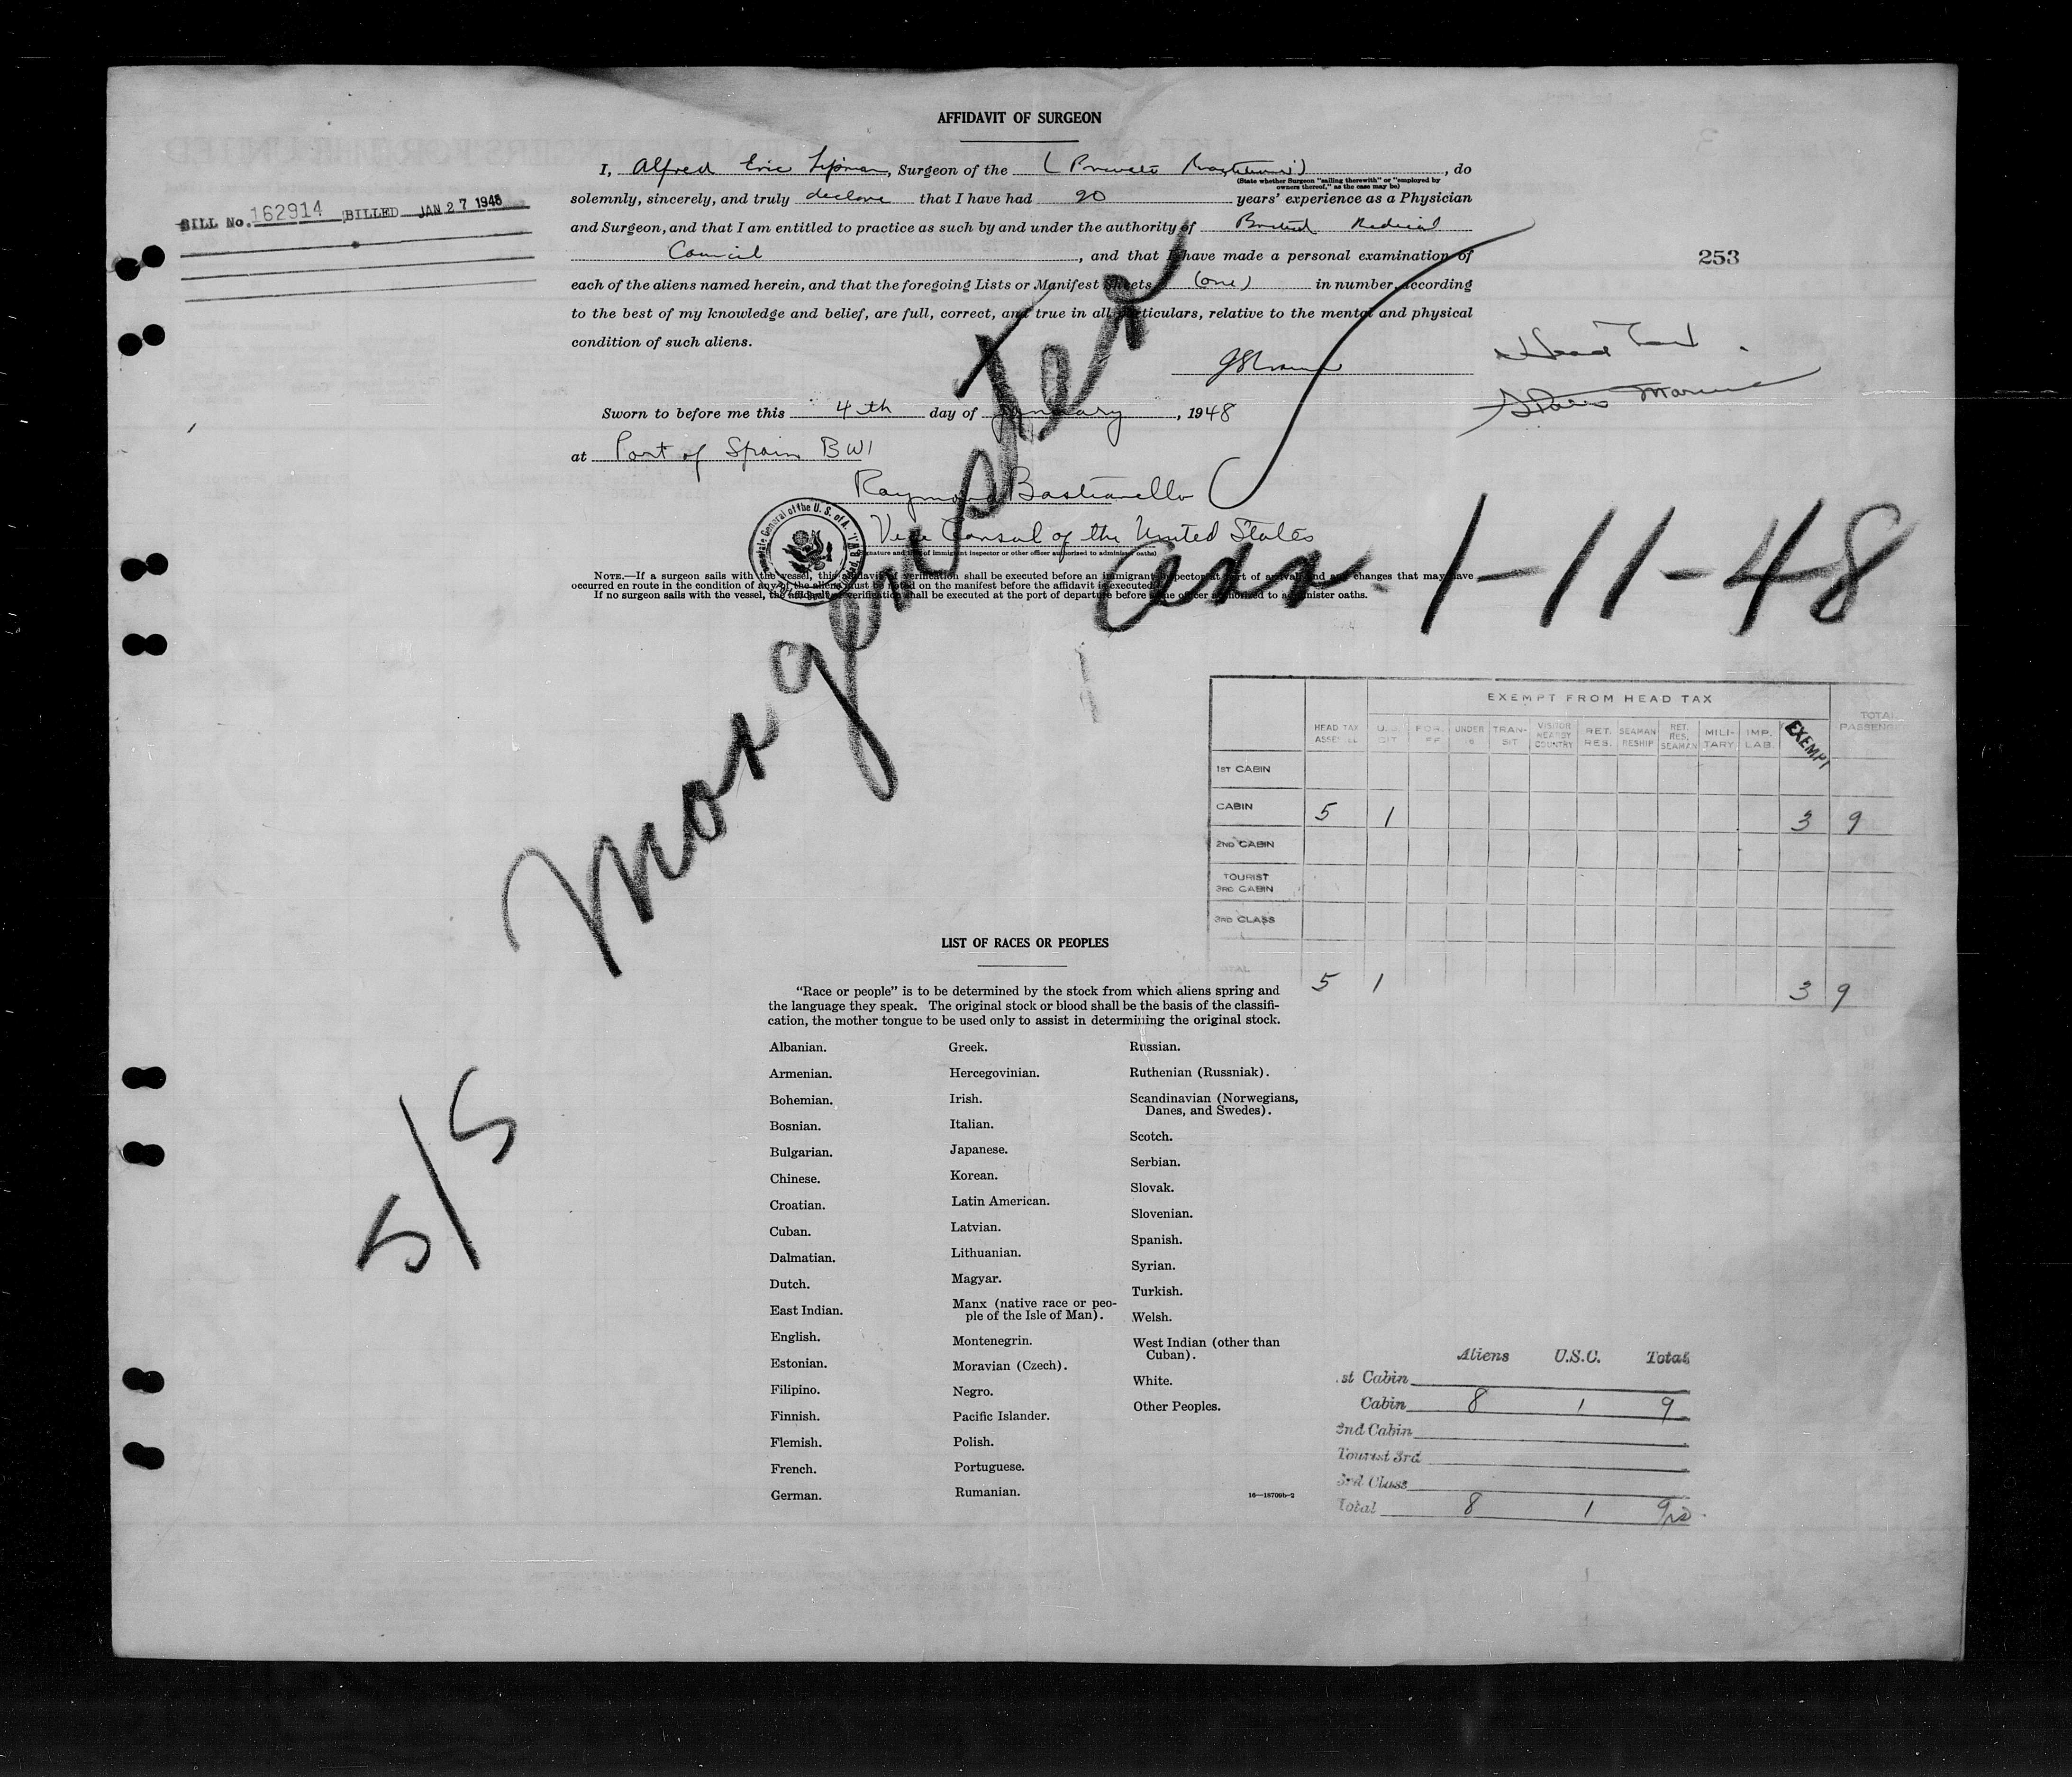 AFFIDAVIT OF SURGEON
I, Alfred Eric, Surgeon of the (Private Practitioner), do
(State whether Surgeon "sailing therewith" or "employed by
owners thereof," as the case may be)
solemnly, sincerely, and truly declare that I have had 20 years' experience as a Physician
and Surgeon, and that I am entitled to practice as such by and under the authority of Medical
Council, and that I have made a personal examination of
each of the aliens named herein, and that the foregoing Lists or Manifest Sheets (one) in number, according
to the best of my knowledge and belief, are full, correct, and true in all particulars, relative to the mental and physical
condition of such aliens.
BILL No. 162914 BILLED JAN 27 1948
253
Head Tax
Sworn to before me this 4th day of January, 1948
at Port of Spain BWI
Raymond Bastianello
Vice Consul of the United States
(Signature and title of immigrant inspector or other officer authorised to administer oaths)
NOTE.—If a surgeon sails with the vessel, this affidavit of verification shall be executed before an immigrant inspector at port of arrival and any changes that may have
occurred en route in the condition of any of the aliens must be noted on the manifest before the affidavit is executed.
If no surgeon sails with the vessel, the affidavit of verification shall be executed at the port of departure before some officer authorized to administer oaths.
Morgenster
arr. 1-11-48
EXEMPT FROM HEAD TAX
HEAD TAX U.S. FOR. UNDER TRAN- VISITOR NEARBY COUNTRY RET. RES. SEAMAN RESHIP RET. RES. SEAMAN MILI- TARY IMP. LAB. EXEMPT TOTAL
CIT 16 SIT PASSENG
1ST CABIN
CABIN 5 1 3 9
2ND CABIN
TOURIST
3RD CABIN
3RD CLASS
TOTAL 5 1 3 9
S/S
LIST OF RACES OR PEOPLES
"Race or people" is to be determined by the stock from which aliens spring and
the language they speak. The original stock or blood shall be the basis of the classifi-
cation, the mother tongue to be used only to assist in determining the original stock.
Albanian.
Armenian.
Bohemian.
Bosnian.
Bulgarian.
Chinese.
Croatian.
Cuban.
Dalmatian.
Dutch.
East Indian.
English.
Estonian.
Filipino.
Finnish.
Flemish.
French.
German.
Greek.
Hercegovinian.
Irish.
Italian.
Japanese.
Korean.
Latin American.
Latvian.
Lithuanian.
Magyar.
Manx (native race or peo-
ple of the Isle of Man).
Montenegrin.
Moravian (Czech).
Negro.
Pacific Islander.
Polish.
Portuguese.
Rumanian.
Russian.
Ruthenian (Russniak).
Scandinavian (Norwegians,
Danes, and Swedes).
Scotch.
Serbian.
Slovak.
Slovenian.
Spanish.
Syrian.
Turkish.
Welsh.
West Indian (other than
Cuban).
White.
Other Peoples.
16—18709b-2
Aliens U.S.C. Total
1st Cabin
Cabin 8 1 9
2nd Cabin
Tourist 3rd
3rd Class
Total 8 1 9